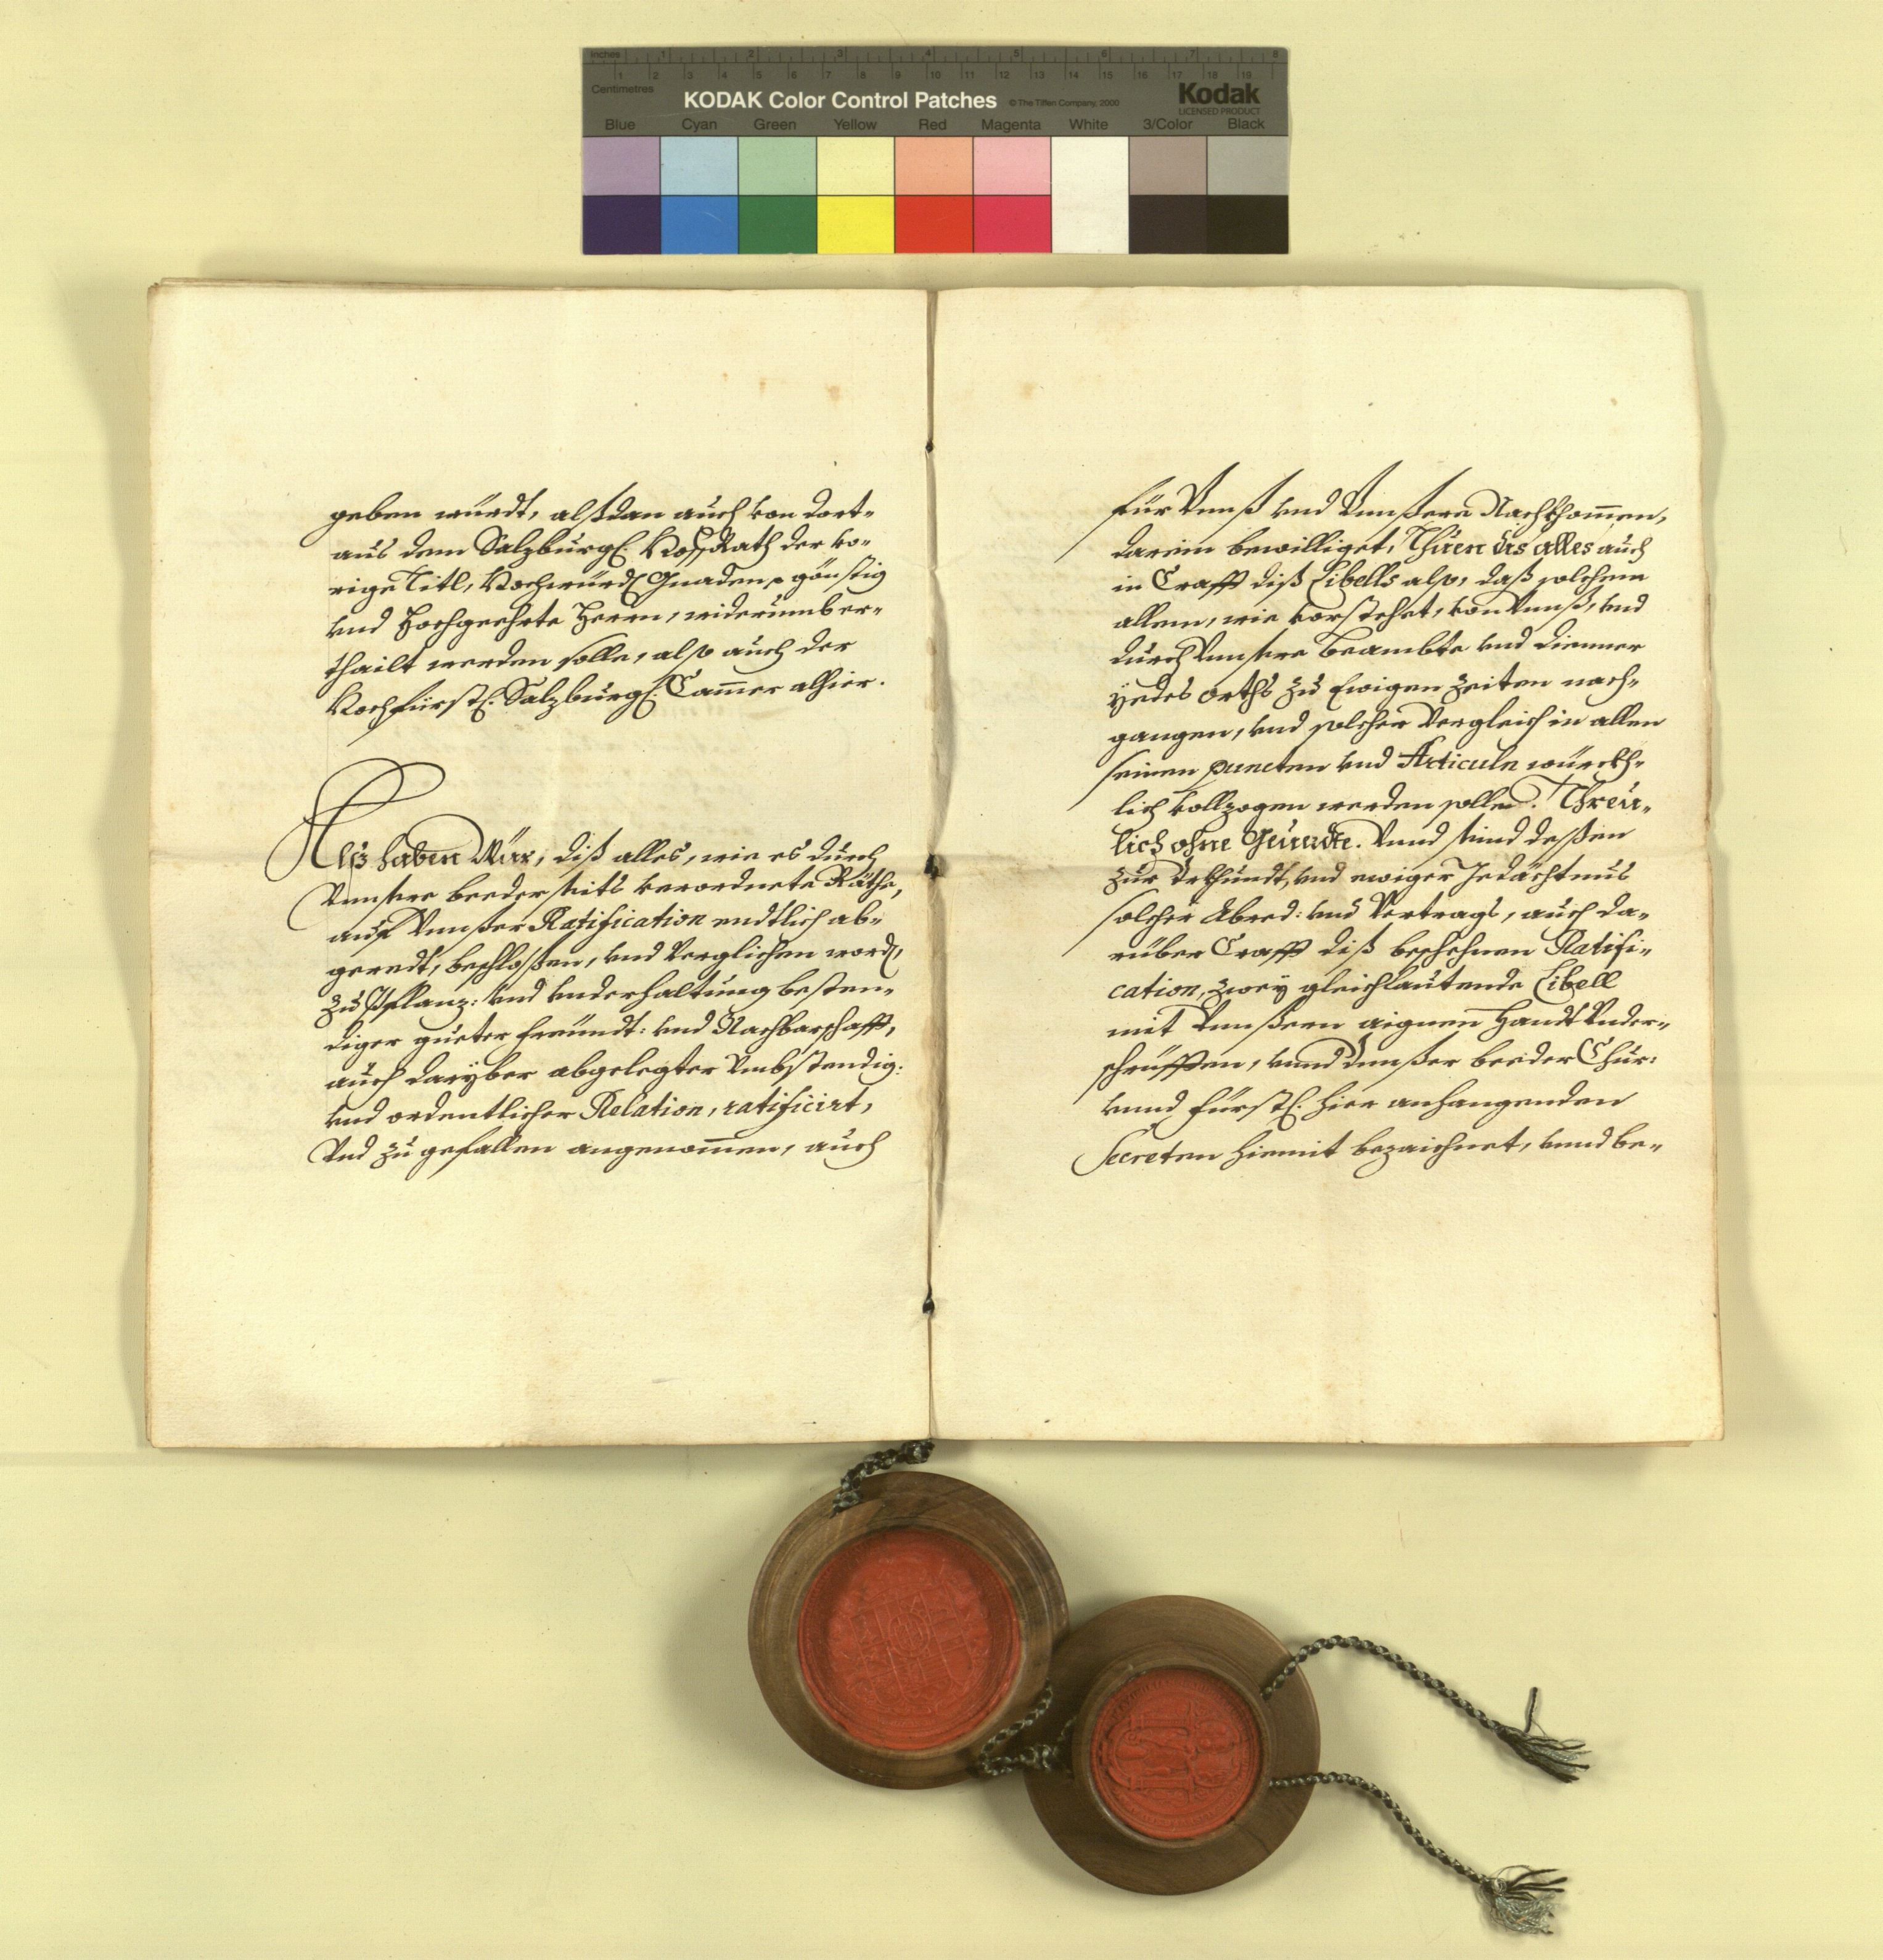 Inches 1 2 3 4 5 6 7 8
1 2 3 4 5 6 7 8 9 10 11 12 13 14 15 16 17 18 19
Centimetres
KODAK Color Control Patches © The Tiffen Company, 2000 Kodak
LICENSED PRODUCT
Blue Cyan Green Yellow Red Magenta White 3/Color Black
geben würdt, alßdan auch von dort-
aus dem Salzburgl. HoffRath der vo-
rige Titl, Hochwürd. Gnaden, günstig
vnd Hochgeehrte Herrn, widerumb er-
thailt werden solle, also auch der
Hochfürstl. Salzburgl. Cam̄er alhier.
Alß haben Wür, diß alles, wie es durch
Vnnsere beederseits verordnete Räthe,
auf Vnnßer Ratification endtlich ab-
geredt, beschloßen, vnd Verglichen word,
zu Pflanz: vnd vnderhaltung besten-
diger gueter freundt: vnd Nachbarschafft,
auch darÿber abgelegter Vmbstendig:
vnd ordentlicher Relation, ratificirt,
Vnd zu gefallen angenom̄en, auch
für Vnnß vnd Vnnßere Nachkhom̄en,
darein bewilliget, Thuen das alles auch
in Crafft diß Libells also, daß solchem
allem, wie vorstehet, von Vnnß, vnd
durch Vnnsere Beambte vnd Dienner
ÿedes orths zu Ewigen Zeiten nach-
gangen, vnd solcher Vergleich in allen
seinen puncten vnd Articuln würckh-
lich vollzogen werden solle. Threu-
lich ohne Geuerdte. Vnnd seind deßen
zur Vrkhundt, vnd ewiger Gedächtnus
solcher Abred: vnd Vertrags, auch da-
rüber Crafft diß beschehnen Ratifi-
cation, zwey gleichlautende Libell
mit Vnnßern aignen Handt Vnder-
schrüfften, vnnd Vnnßer beeder Chur:
vnnd Fürstl. hier anhangenden
Secreten hiemit bezaichnet, vnnd be-